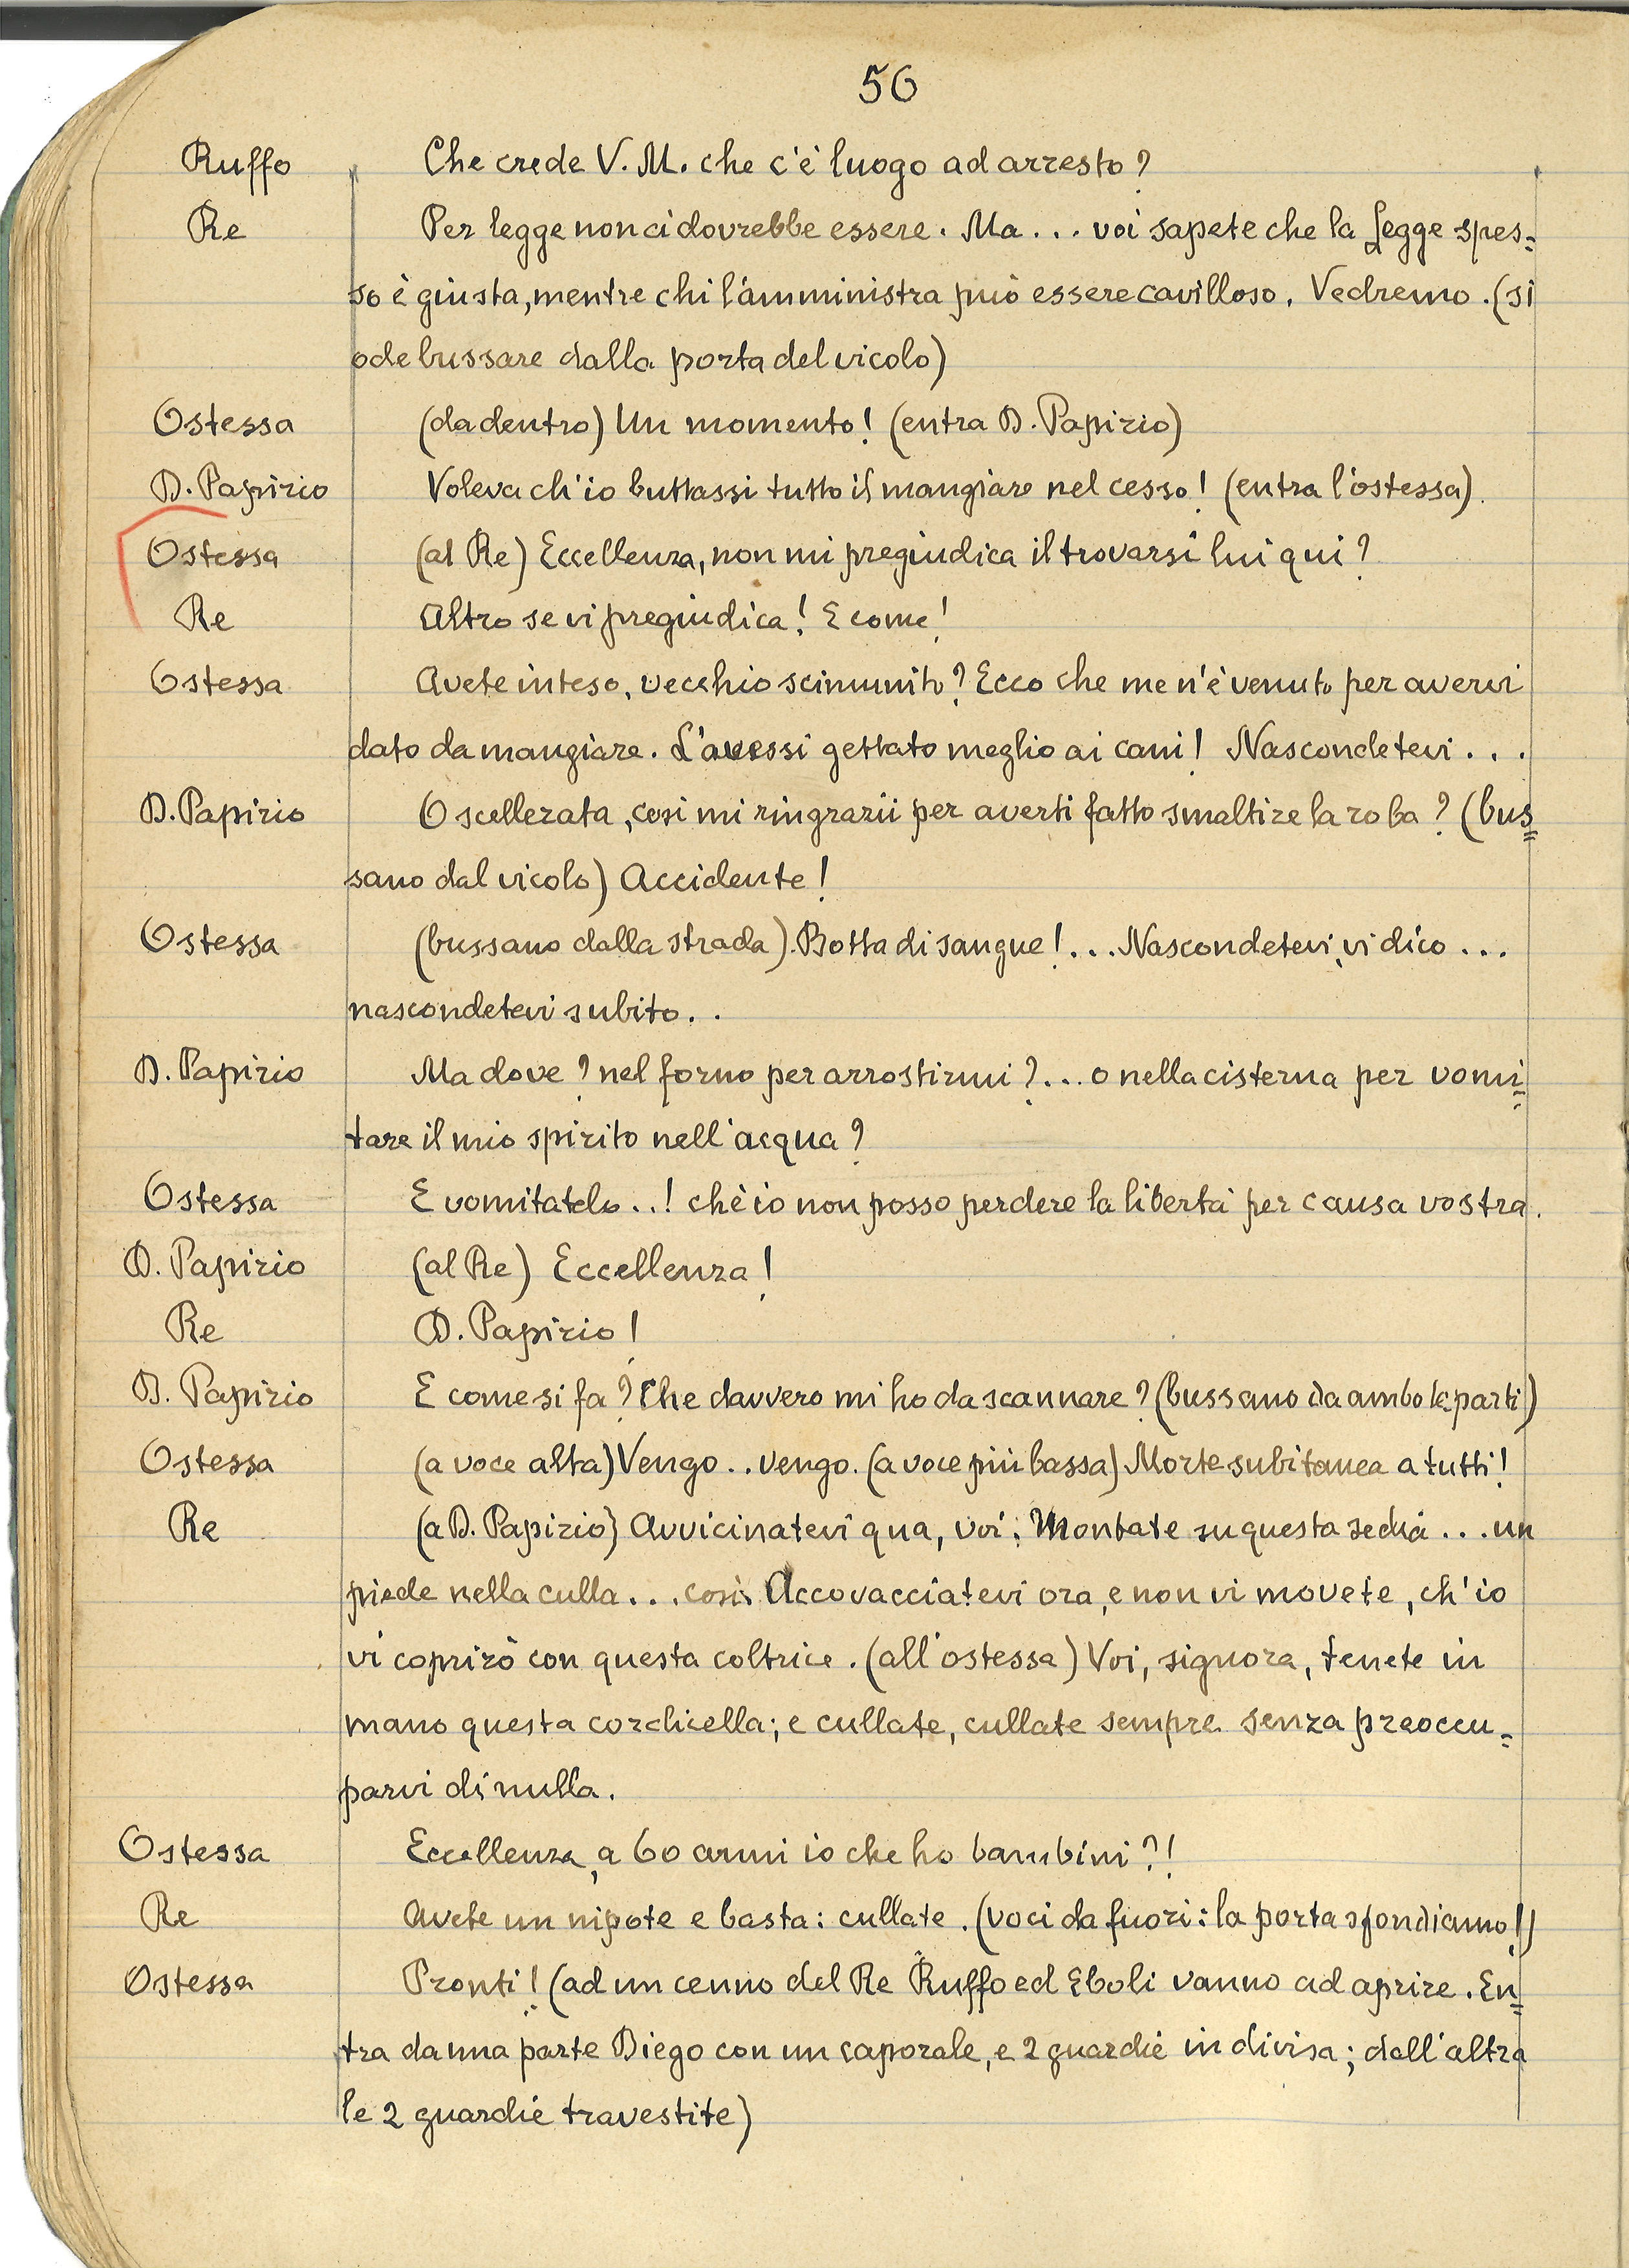 56
Ruffo Che crede V. M. che c'è luogo ad arresto?
Re Per legge non ci dovrebbe essere. Ma... voi sapete che la Legge spes=
so è giusta, mentre chi l'amministra può essere cavilloso. Vedremo. (si
ode bussare dalla porta del vicolo)
Ostessa (da dentro) Un momento! (entra D. Papirio)
D. Papirio Voleva ch'io buttassi tutto il mangiare nel cesso! (entra l'ostessa).
Ostessa (al Re) Eccellenza, non mi pregiudica il trovarsi lui qui?
Re Altro se vi pregiudica! E come!
Ostessa Avete inteso, vecchio scimunito? Ecco che me n'è venuto per avervi
dato da mangiare. L'avessi gettato meglio ai cani! Nascondetevi...
D. Papirio O scellerata, così mi ringrazii per averti fatto smaltire la roba? (bus=
sano dal vicolo) Accidente!
Ostessa (bussano dalla strada). Botta di sangue!... Nascondetevi, vi dico...
nascondetevi subito..
D. Papirio Ma dove? nel forno per arrostirmi?... o nella cisterna per vomi=
tare il mio spirito nell'acqua?
Ostessa E vomitatelo..! chè io non posso perdere la libertà per causa vostra.
D. Papirio (al Re) Eccellenza!
Re D. Papirio!
D. Papirio E come si fa? Che davvero mi ho da scannare? (bussano da ambo le parti)
Ostessa (a voce alta) Vengo.. vengo. (a voce più bassa) Morte subitanea a tutti!
Re (a D. Papirio) Avvicinatevi qua, voi: Montate su questa sedia... un
piede nella culla... così. Accovacciatevi ora, e non vi movete, ch'io
vi coprirò con questa coltrice. (all'ostessa) Voi, signora, tenete in
mano questa cordicella; e cullate, cullate sempre senza preoccu=
parvi di nulla.
Ostessa Eccellenza, a 60 anni io che ho bambini?!
Re Avete un nipote e basta: cullate. (voci da fuori: la porta sfondiamo!)
Ostessa Pronti! (ad un cenno del Re Ruffo ed Eboli vanno ad aprire. En=
tra da una parte Diego con un caporale, e 2 guardie in divisa; dall'altra
le 2 guardie travestite)